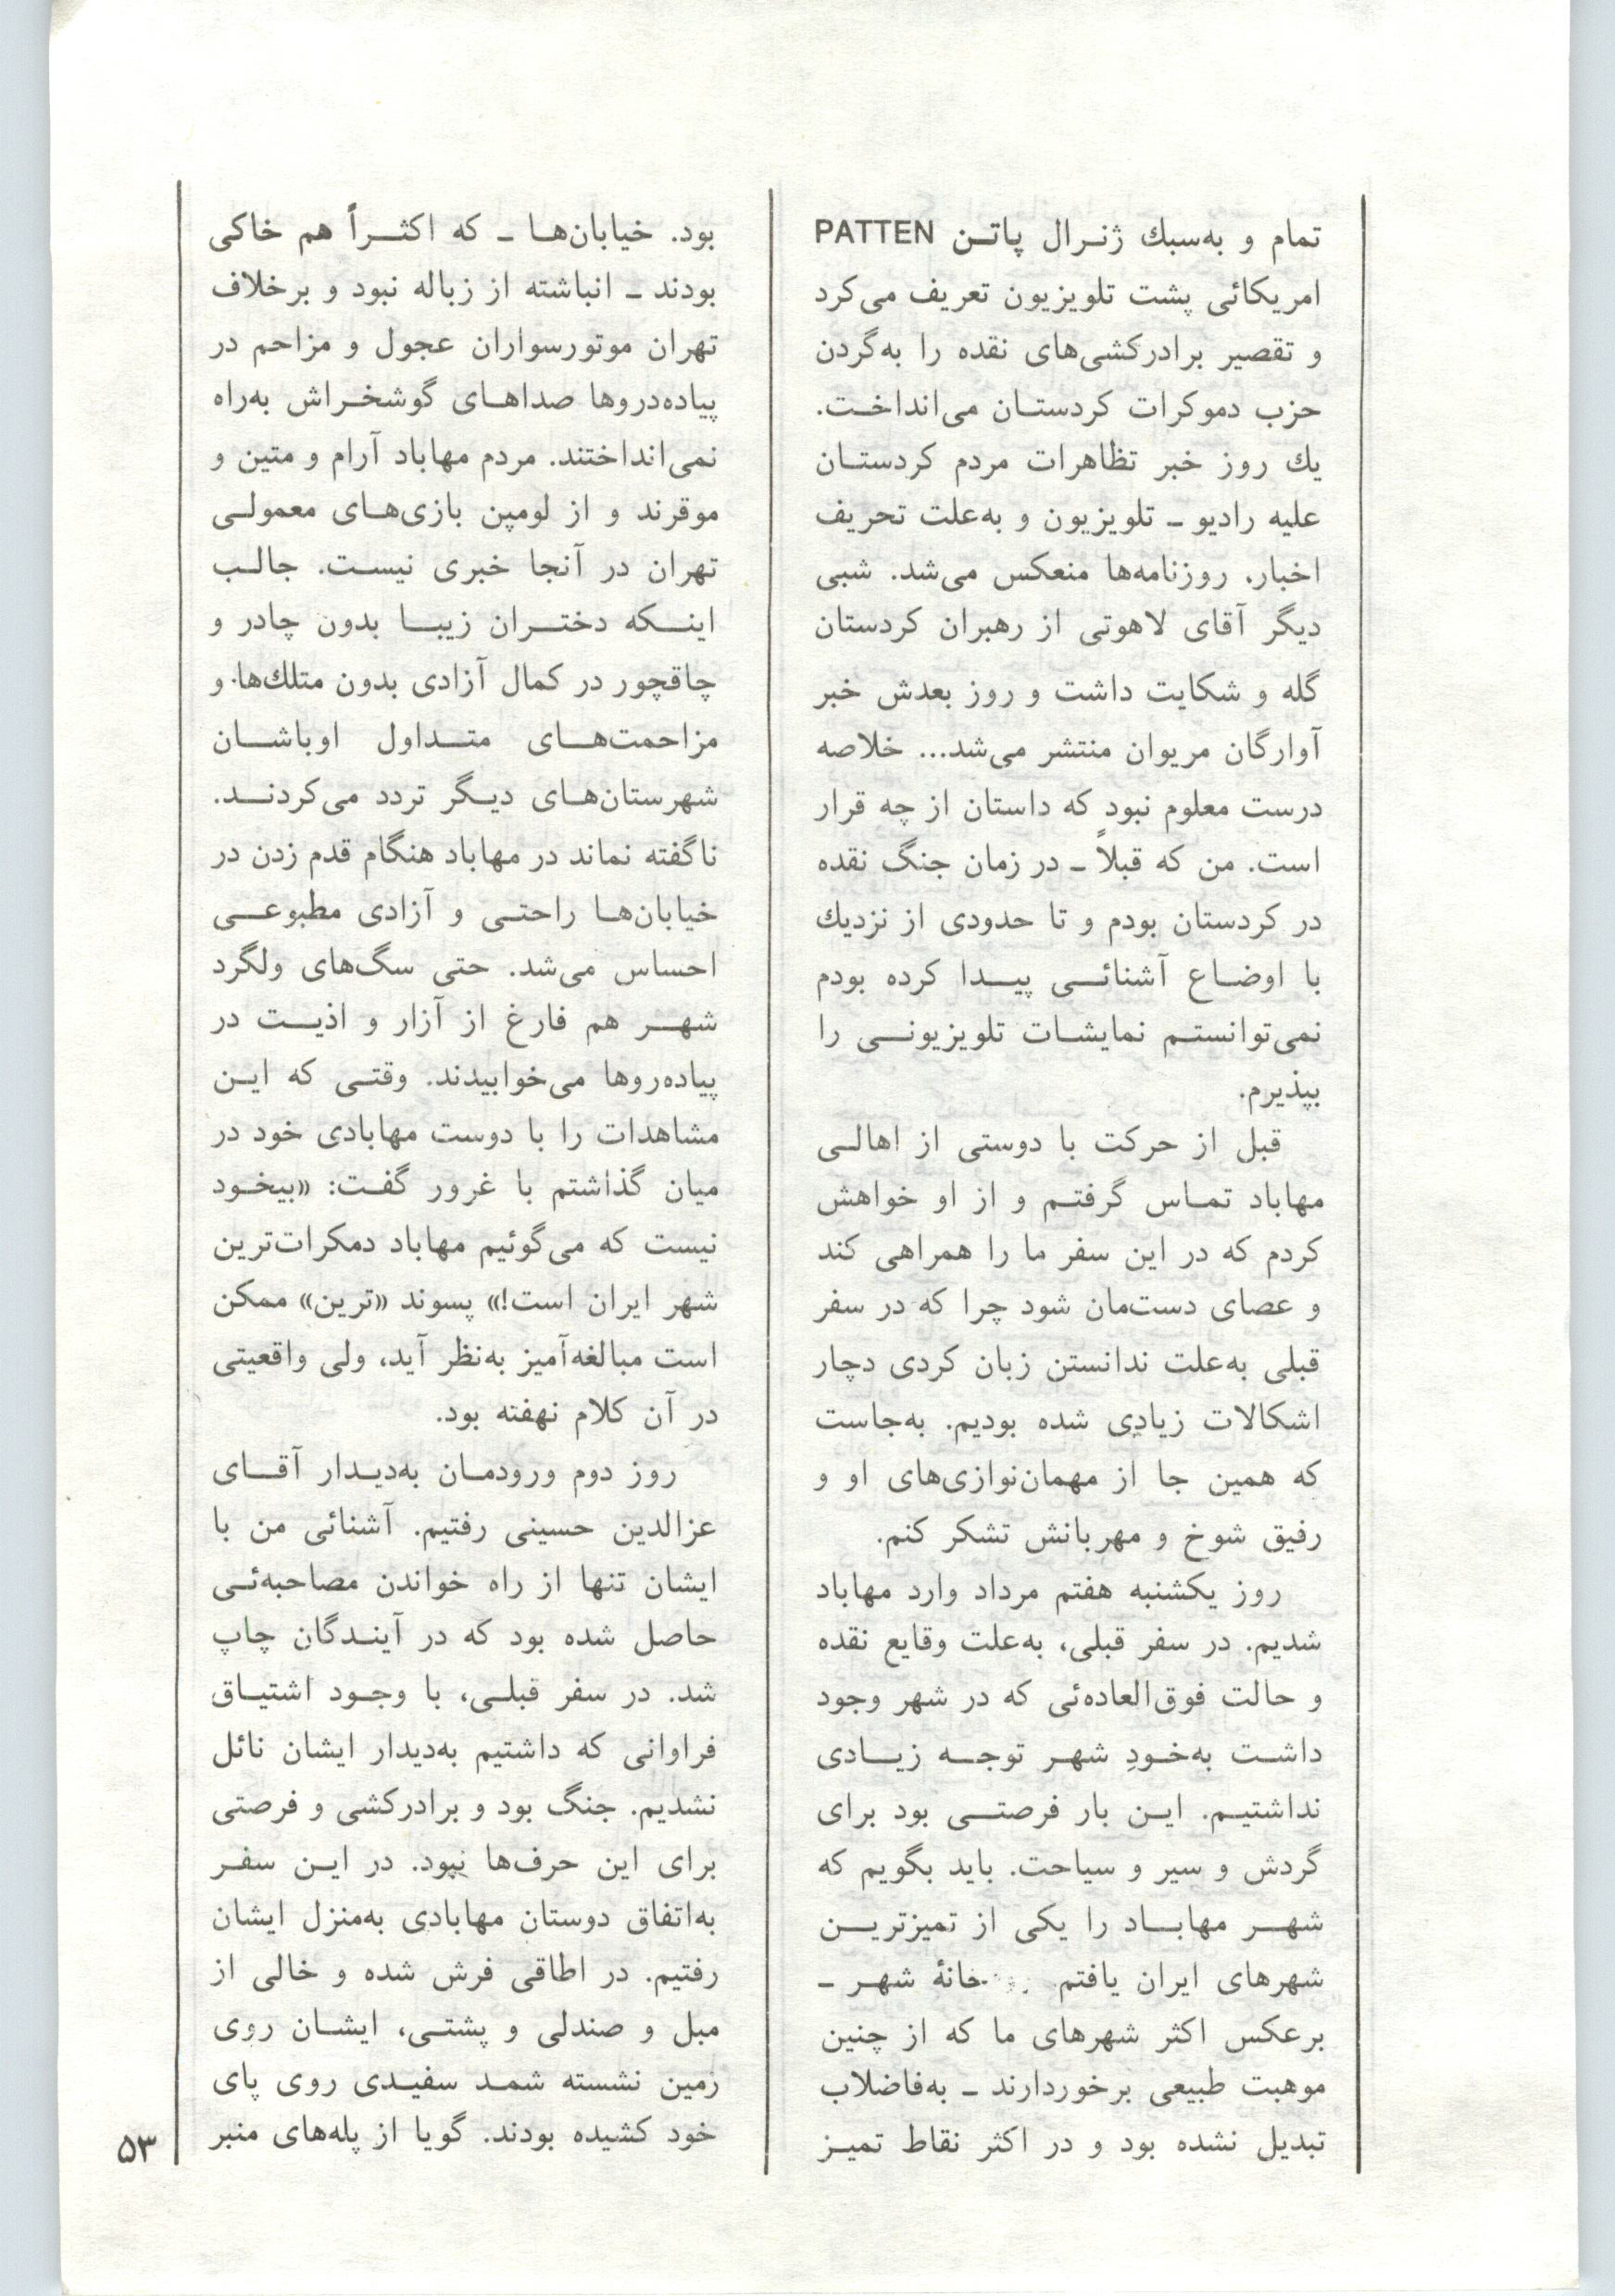 تمام و به‌سبك ژنرال پاتن PATTEN
امریکائی پشت تلویزیون تعریف می‌کرد
و تقصیر برادرکشی‌های نقده را به‌گردن
حزب دموکرات کردستان می‌انداخت.
یك روز خبر تظاهرات مردم کردستان
علیه رادیو ـ تلویزیون و به‌علت تحریف
اخبار، روزنامه‌ها منعکس می‌شد. شبی
دیگر آقای لاهوتی از رهبران کردستان
گله و شکایت داشت و روز بعدش خبر
آوارگان مریوان منتشر می‌شد... خلاصه
درست معلوم نبود که داستان از چه قرار
است. من که قبلاً ـ در زمان جنگ نقده
در کردستان بودم و تا حدودی از نزدیك
با اوضاع آشنائی پیدا کرده بودم
نمی‌توانستم نمایشات تلویزیونی را
بپذیرم.
قبل از حرکت با دوستی از اهالی
مهاباد تماس گرفتم و از او خواهش
کردم که در این سفر ما را همراهی کند
و عصای دست‌مان شود چرا که در سفر
قبلی به‌علت ندانستن زبان کردی دچار
اشکالات زیادی شده بودیم. به‌جاست
که همین جا از مهمان‌نوازی‌های او و
رفیق شوخ و مهربانش تشکر کنم.
روز یکشنبه هفتم مرداد وارد مهاباد
شدیم. در سفر قبلی، به‌علت وقایع نقده
و حالت فوق‌العاده‌ئی که در شهر وجود
داشت به‌خودِ شهر توجه زیادی
نداشتیم. این بار فرصتی بود برای
گردش و سیر و سیاحت. باید بگویم که
شهر مهاباد را یکی از تمیزترین
شهرهای ایران یافتم خانهٔ شهر ـ
برعکس اکثر شهرهای ما که از چنین
موهبت طبیعی برخوردارند ـ به‌فاضلاب
تبدیل نشده بود و در اکثر نقاط تمیز
بود. خیابان‌ها ـ که اکثراً هم خاکی
بودند ـ انباشته از زباله نبود و برخلاف
تهران موتورسواران عجول و مزاحم در
پیاده‌دروها صداهای گوشخراش به‌راه
نمی‌انداختند. مردم مهاباد آرام و متین و
موقرند و از لومپن بازی‌های معمولی
تهران در آنجا خبری نیست. جالب
اینکه دختران زیبا بدون چادر و
چاقچور در کمال آزادی بدون متلك‌ها و
مزاحمت‌های متداول اوباشان
شهرستان‌های دیگر تردد می‌کردند.
ناگفته نماند در مهاباد هنگام قدم زدن در
خیابان‌ها راحتی و آزادی مطبوعی
احساس می‌شد. حتی سگ‌های ولگرد
شهر هم فارغ از آزار و اذیت در
پیاده‌روها می‌خوابیدند. وقتی که این
مشاهدات را با دوست مهابادی خود در
میان گذاشتم با غرور گفت: «بیخود
نیست که می‌گوئیم مهاباد دمکرات‌ترین
شهر ایران است!» پسوند «ترین» ممکن
است مبالغه‌آمیز به‌نظر آید، ولی واقعیتی
در آن کلام نهفته بود.
روز دوم ورودمان به‌دیدار آقای
عزالدین حسینی رفتیم. آشنائی من با
ایشان تنها از راه خواندن مصاحبه‌ئی
حاصل شده بود که در آیندگان چاپ
شد. در سفر قبلی، با وجود اشتیاق
فراوانی که داشتیم به‌دیدار ایشان نائل
نشدیم. جنگ بود و برادرکشی و فرصتی
برای این حرف‌ها نبود. در این سفر
به‌اتفاق دوستان مهابادی به‌منزل ایشان
رفتیم. در اطاقی فرش شده و خالی از
مبل و صندلی و پشتی، ایشان روی
زمین نشسته شمد سفیدی روی پای
خود کشیده بودند. گویا از پله‌های منبر
۵۳